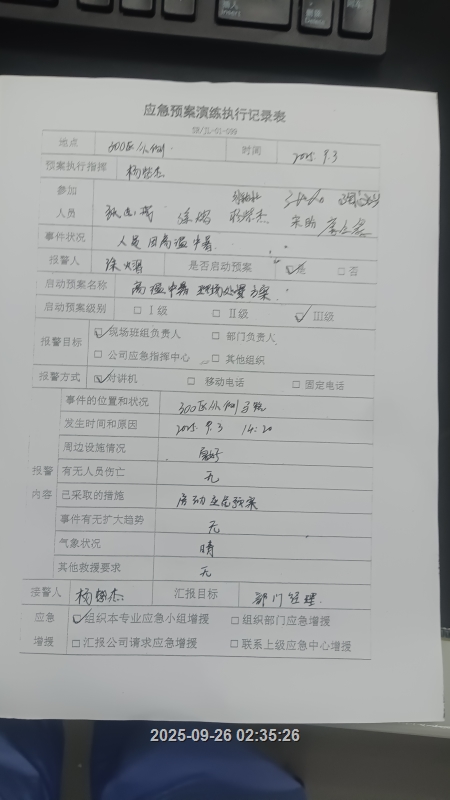 应急预案演练执行记录表
SH/JL-01-009
地点 300区 时间 2025.9.3
预案执行指挥 杨荣杰
参加
人员 杨荣杰
事件状况 人员因高温中暑
报警人 是否启动预案 ☑是 □否
启动预案名称 高温中暑现场处置方案
启动预案级别 □Ⅰ级 □Ⅱ级 ☑Ⅲ级
报警目标 ☑现场班组负责人 □部门负责人
□公司应急指挥中心 □其他组织
报警方式 ☑对讲机 □移动电话 □固定电话
事件的位置和状况 300区
发生时间和原因 2025.9.3 14:20
周边设施情况 良好
报警 有无人员伤亡 无
内容 已采取的措施 启动应急预案
事件有无扩大趋势 无
气象状况 晴
其他救援要求 无
接警人 杨荣杰 汇报目标 部门经理
应急 ☑组织本专业应急小组增援 □组织部门应急增援
增援 □汇报公司请求应急增援 □联系上级应急中心增援
2025-09-26 02:35:26